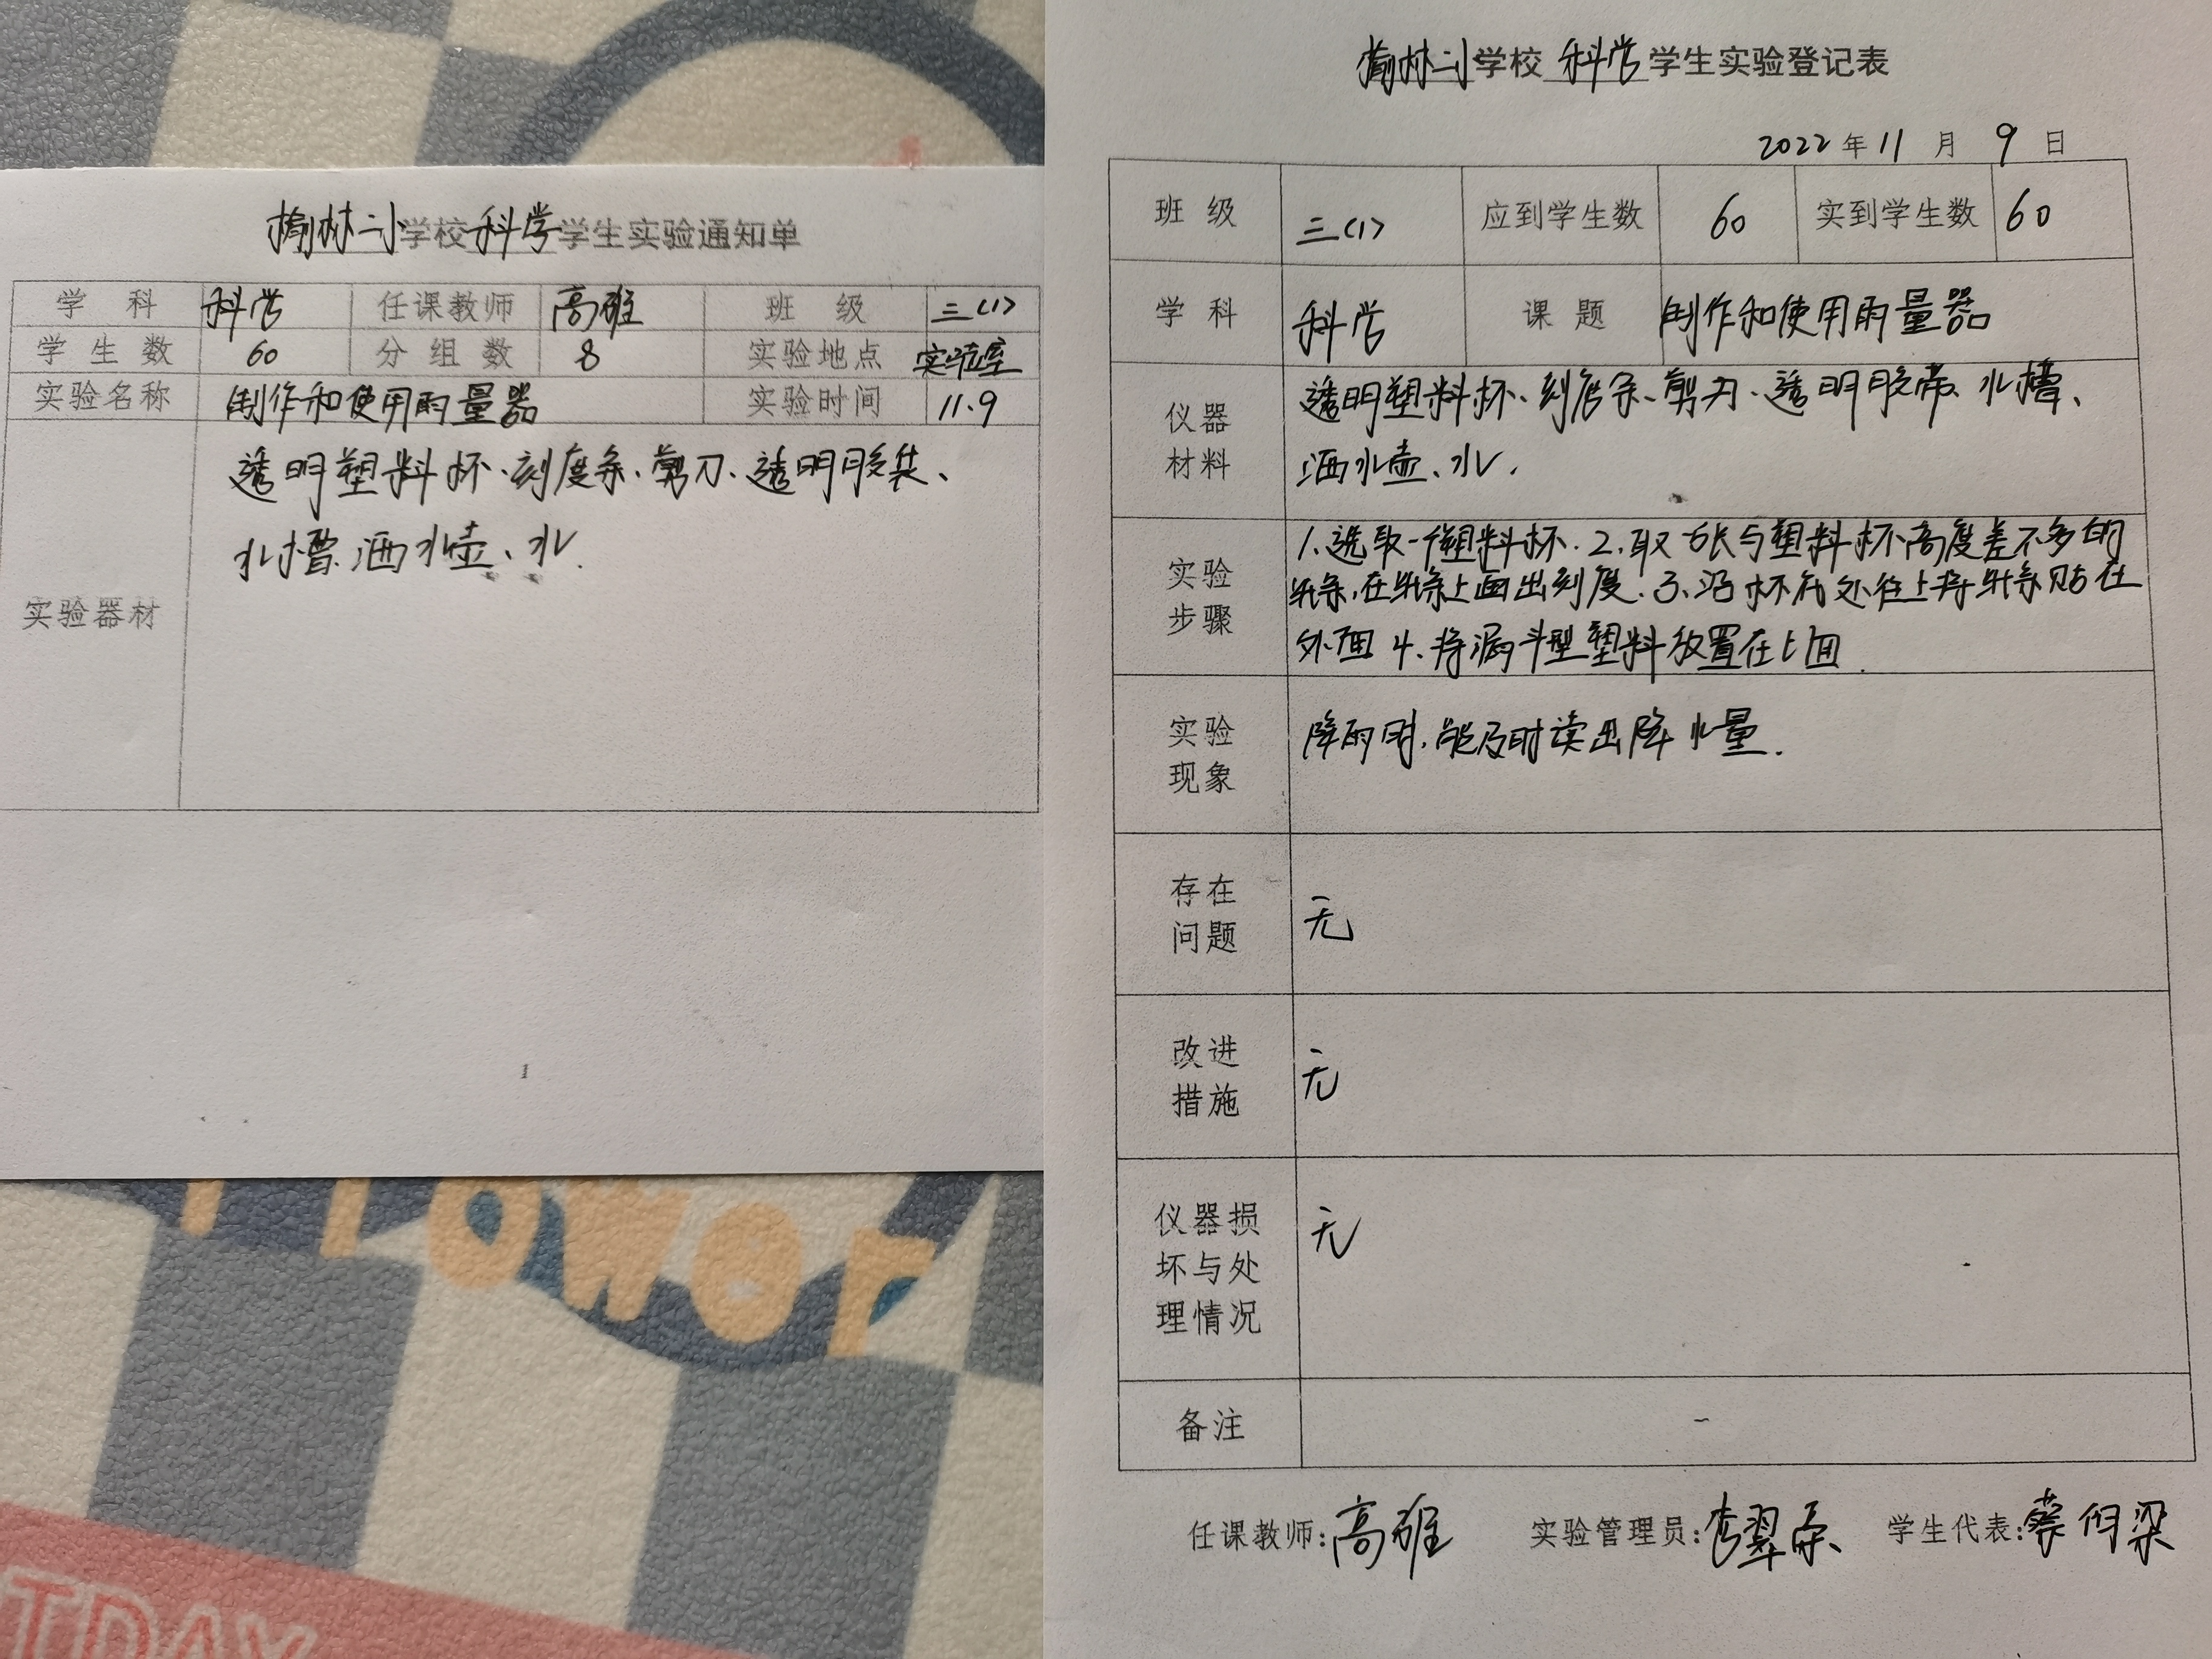 榆林二小学校科学学生实验通知单
学 科 科学 任课教师 高雅 班 级 三(1)
学 生 数 60 分 组 数 8 实验地点 实验室
实验名称 制作和使用雨量器 实验时间 11.9
透明塑料杯、刻度条、剪刀、透明胶袋、
水槽、洒水壶、水.
实验器材
Flower
TDAY
榆林二小学校 科学 学生实验登记表
2022年11月9日
班 级 三(1) 应到学生数 60 实到学生数 60
学 科 科学 课 题 制作和使用雨量器
仪器
材料
透明塑料杯、刻度条、剪刀、透明胶带、水槽、
洒水壶、水.
实验
步骤
1.选取一个塑料杯.2.取一张与塑料杯高度差不多的
纸条,在纸条上画出刻度.3.沿杯底处往上将纸条贴在
外面 4.将漏斗型塑料放置在上面.
实验
现象
降雨时,能及时读出降水量.
存在
问题
无
改进
措施
无
仪器损
坏与处
理情况
无
备注
任课教师:高雅 实验管理员:李翠 学生代表:蔡何梁